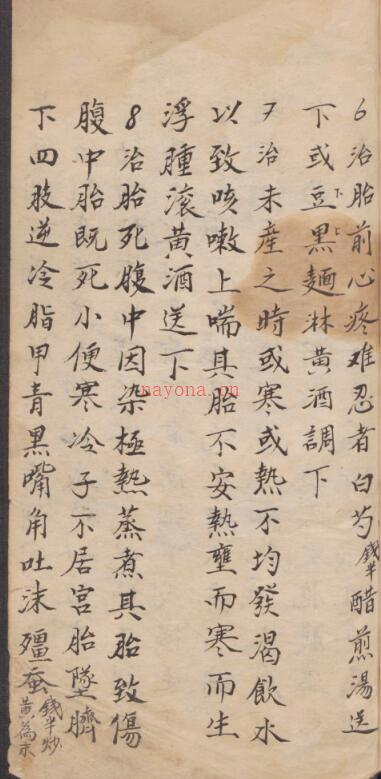 6治胎前心疼难忍者白芍錢半醋煎湯送
下或豆下黑上麵淋黃酒調下
7治未產之時或寒或熱不均發渴飲水
以致咳嗽上喘其胎不安熱壅而寒而生
浮腫滚黃酒送下
8治胎死腹中因染極熱蒸煮其胎致傷
腹中胎既死小便寒冷子不居宫胎墜臍
下四肢逆冷脂甲青黑嘴角吐沫殭蚕錢半炒黃為末
nayona.cn